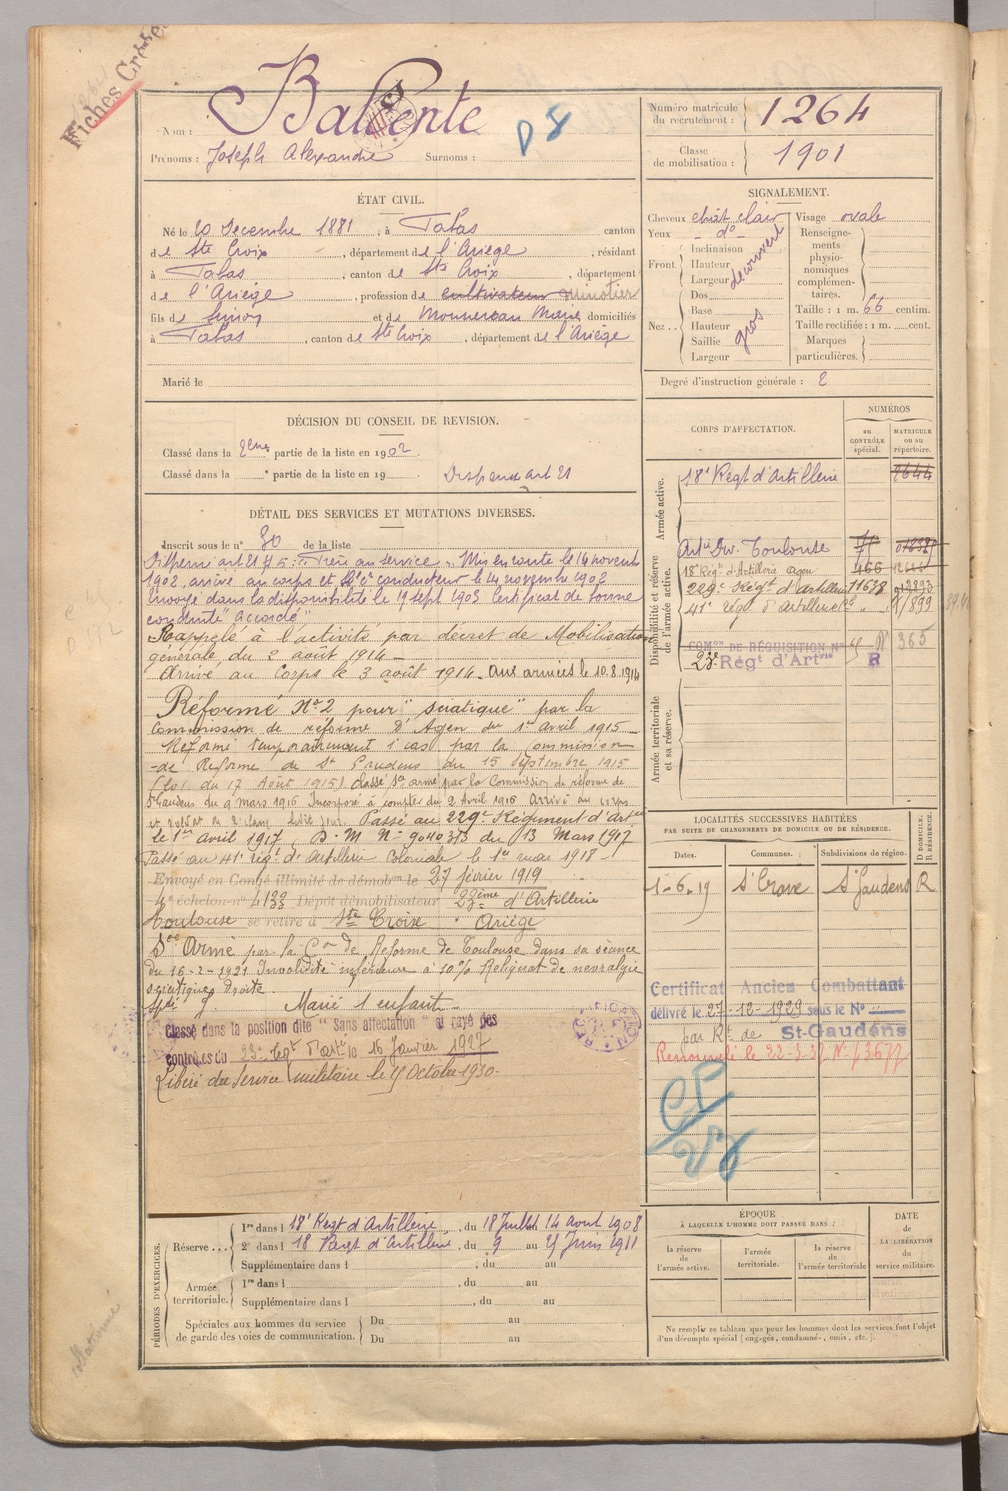 Fiches Cr
Nom : Balente
Prénoms : Joseph Alexandre Surnoms :
D 8
Numéro matricule du recrutement : 1264
Classe de mobilisation : 1901
ÉTAT CIVIL.
Né le 20 Decembre 1881, à Tabas canton
de Ste Croix, département de l'Ariège, résidant
à Tabas, canton de Ste Croix, département
de l'Ariège, profession de cultivateur minotier
fils de et de Marie domiciliés
à Tabas, canton de Ste Croix, département de l'Ariège
Marié le
SIGNALEMENT.
Cheveux chât clair Visage ovale
Yeux do
Front Inclinaison Hauteur Largeur découvert
Nez Dos Base Hauteur Saillie Largeur gros
Renseignements physionomiques complémentaires.
Taille : 1 m. 66 centim.
Taille rectifiée : 1 m. cent.
Marques particulières.
Degré d'instruction générale : 2
DÉCISION DU CONSEIL DE REVISION.
Classé dans la 2eme partie de la liste en 1902.
Classé dans la partie de la liste en 19 Dispensé art 21
DÉTAIL DES SERVICES ET MUTATIONS DIVERSES.
Inscrit sous le n° 30 de la liste
Dispensé art 21 § 5 : Frère au service. Mis en route le 14 novembre
1902, arrivé au corps et 2e cr conducteur le 14 novembre 1902
Envoyé dans la disponibilité le 19 sept 1903 Certificat de bonne
conduite "accordé"
Rappelé à l'activité par décret de Mobilisation
générale du 2 août 1914
Arrivé au Corps le 3 août 1914. Aux armées le 10.8.1914
Réformé N° 2 pour "sciatique" par la
Commission de réforme d'Agen du 1er avril 1915
Réformé temporairement 1 cas par la Commission
de Réforme de St Gaudens du 15 Septembre 1915
(Loi du 17 Août 1915) classé Sce armé par la Commission de réforme de
St Gaudens du 9 mars 1916 Incorporé à compter du 2 Avril 1916 Arrivé au corps
et soldat de 2e classe ledit jour. Passé au 229e Régiment d'Artie
le 1er avril 1917, D. M. N° 9040 3/3 du 13 Mars 1917
Passé au 41e régt d'Artillerie Coloniale le 1er mai 1918
Envoyé en Congé illimité de démobon le 27 février 1919
4e échelon n° 4133 Dépôt démobilisateur 23ème d'Artillerie
Toulouse se retire à Ste Croix Ariège
Sce Armé par la Con de Réforme de Toulouse dans sa séance
du 16-2-1921 Invalidité inférieure à 10% Reliquat de nevralgie
sciatique droite.
Marié 1 enfant
Classé dans la position dite "Sans affectation" et rayé des
contrôles du 23e régt d'artie le 16 Janvier 1927
Libéré du Service militaire le 15 Octobre 1930.
CORPS D'AFFECTATION.
NUMÉROS
au CONTRÔLE spécial.
MATRICULE ou au répertoire.
Armée active.
18e Régt d'Artillerie 1644
Disponibilité et réserve de l'armée active.
Artie Div. Toulouse
18e Régt d'Artillerie Agen 466
229e Régt d'Artillerie 11638
41e régt d'artillerie cle 899
COMon DE RÉQUISITION N° 365
23e Régt d'Artrie R
Armée territoriale et sa réserve.
LOCALITÉS SUCCESSIVES HABITÉES
PAR SUITE DE CHANGEMENTS DE DOMICILE OU DE RÉSIDENCE.
Dates. Communes. Subdivisions de région. D DOMICILE. R RÉSIDENCE.
1-6-19 St Gaudens R
Certificat Ancien Combattant
délivré le 27-12-1929 sous le N°
par Rt de St-Gaudens
Renouvelé le 22-3-37 N° 43677
PÉRIODES D'EXERCICES.
Réserve... 1re dans l 18e Régt d'Artillerie, du 18 Juillet 14 aout 1908
2e dans l 18 Régt d'Artillerie, du 9 au 25 Juin 1911
Supplémentaire dans l , du au
Armée territoriale. 1re dans l , du au
Supplémentaire dans l , du au
Spéciales aux hommes du service de garde des voies de communication. Du au
Du au
ÉPOQUE
À LAQUELLE L'HOMME DOIT PASSER DANS :
la réserve de l'armée active.
l'armée territoriale.
la réserve de l'armée territoriale
DATE de LA LIBÉRATION du service militaire.
Ne remplir ce tableau que pour les hommes dont les services font l'objet
d'un décompte spécial (engagés, condamnés, omis, etc.).